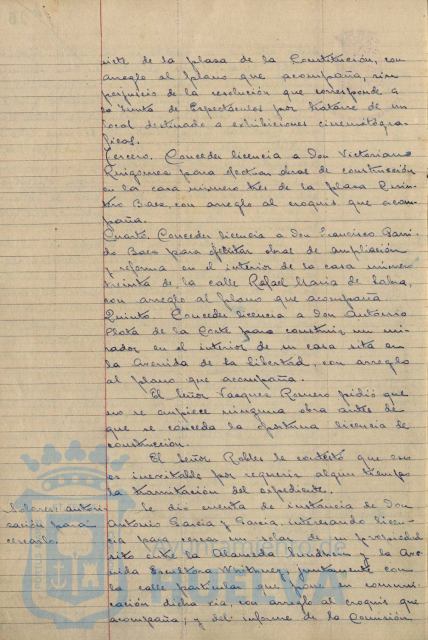 siete de la plaza de la Constitución, con
arreglo al plano que acompaña, sin
perjuicio de la resolución que corresponde a
la Junta de Espectáculos por tratarse de un
local destinado a exhibiciones cinematógra-
ficas.
Tercero. Conceder licencia a Don Victoriano
para efectuar obras de construcción
en la casa número tres de la plaza Quin-
tero Baez, con arreglo al croquis que acom-
paña.
Cuarto. Conceder licencia a Don Francisco Garri-
do Baez para efectuar obras de ampliación
y reforma en el interior de la casa número
treinta de la calle Rafael María de Labra,
con arreglo al plano que acompaña
Quinto. Conceder licencia a Don Antonio
Plata de la Corte para construir un mi-
rador en el interior de su casa sita en
la Avenida de la Libertad, con arreglo
al plano que acompaña.
El Señor Vazquez Romero pidió que
no se empiece ninguna obra antes de
que se conceda la oportuna licencia de
construcción.
El Señor Robles le contestó que eso
es inevitable por requerir algun tiempo
la tramitación del expediente.
Solares: autori-
zación para
cercarlo.
Se dió cuenta de instancia de Don
Antonio García y García, interesando licen-
cia para cercar un solar de su propiedad
sito entre la Alameda Sundheim y la Ave-
nida Escultora Whitney, juntamente con
la calle particular que pone en comuni-
cación dicha vía, con arreglo al croquis que
acompaña; y del informe de la Comisión